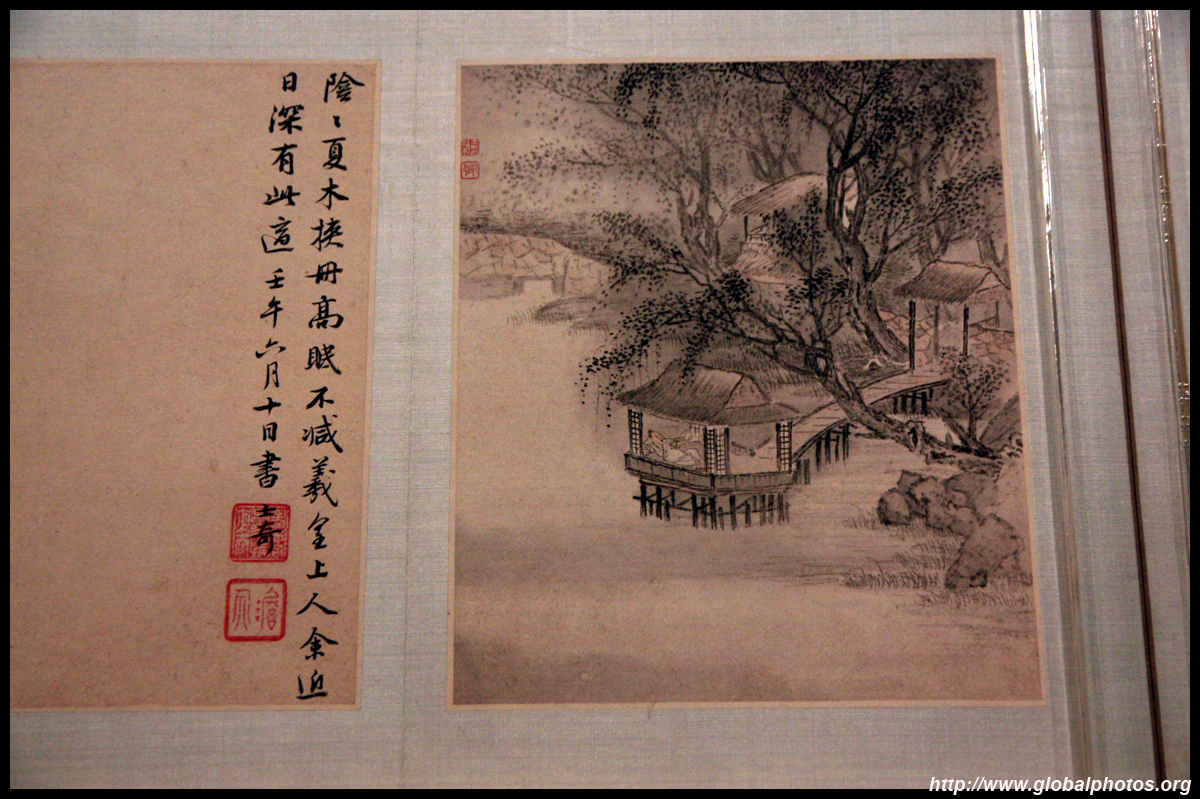 陰〻夏木挾冊高眠不減羲皇上人余近
日深有此適壬午六月十日書士奇
澹人
http://www.globalphotos.org